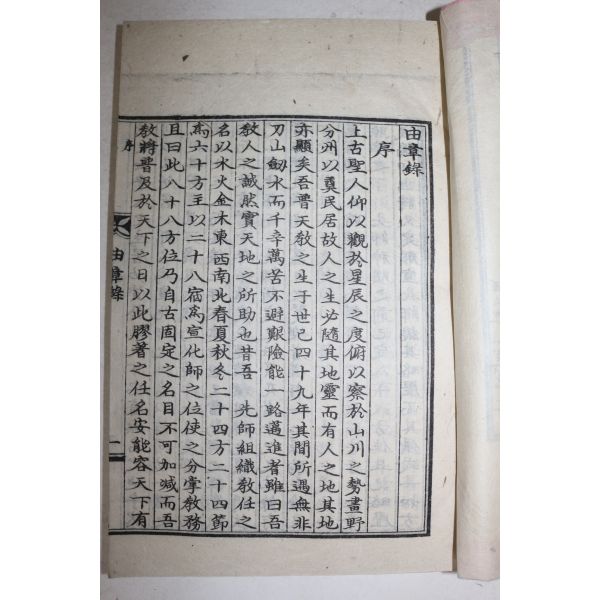 由章錄
序
上古聖人仰以觀於星辰之度俯以察於山川之勢畫野
分州以奠民居故人之生必隨其地靈而有人之地其地
亦顯矣吾普天敎之生于世已四十九年其間所遇無非
刀山劔水而千辛萬苦不避艱險能一路邁進者雖曰吾
敎人之誠然實天地之所助也昔吾 先師組織敎任之
名以水火金木東西南北春夏秋冬二十四方二十四節
爲六十方主以二十八宿爲宣化師之位使之分掌敎務
且曰此八十八方位乃自古固定之名目不可加减而吾
敎將普及於天下之日以此膠著之任名安能容天下有
序
由章錄
一